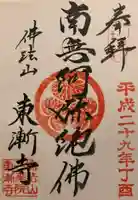 奉拝
平成二十九年丁酉
南無阿弥陀佛
佛法山
東漸寺